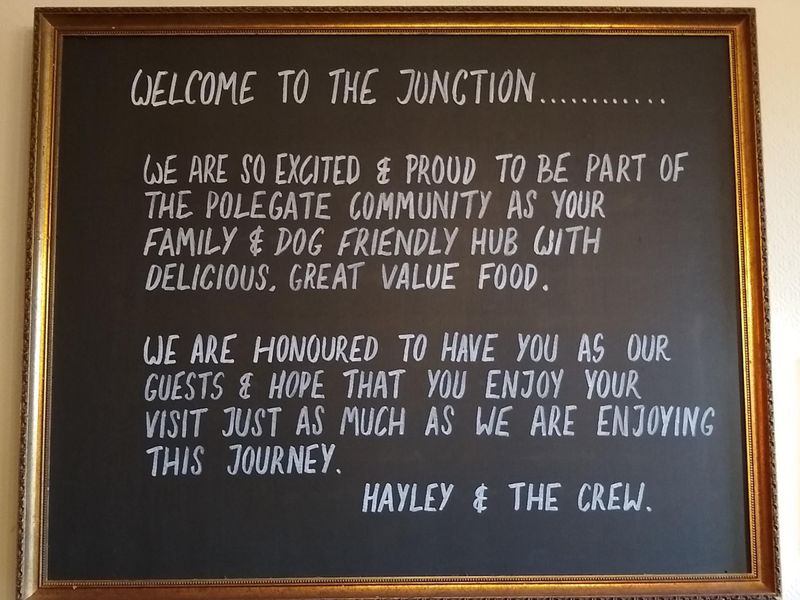 WELCOME TO THE JUNCTION............
WE ARE SO EXCITED & PROUD TO BE PART OF
THE POLEGATE COMMUNITY AS YOUR
FAMILY & DOG FRIENDLY HUB WITH
DELICIOUS, GREAT VALUE FOOD.
WE ARE HONOURED TO HAVE YOU AS OUR
GUESTS & HOPE THAT YOU ENJOY YOUR
VISIT JUST AS MUCH AS WE ARE ENJOYING
THIS JOURNEY.
HAYLEY & THE CREW.